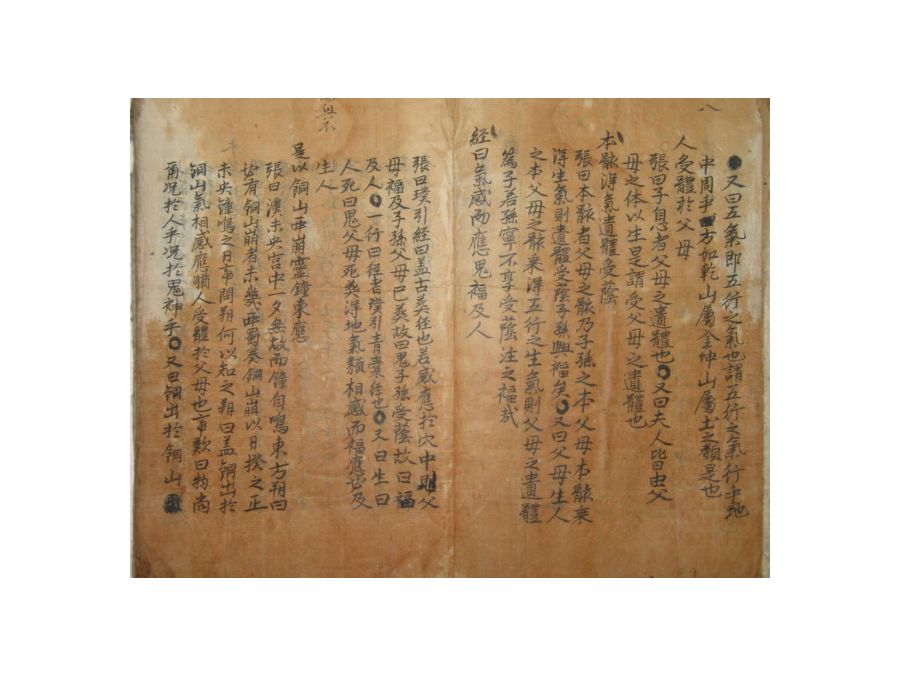 又曰五氣即五行之氣也謂五行之氣行乎地
中周乎四方如乾山屬金坤山屬土之類是也
人受體於父母
張曰子息者父母之遺體也又曰夫人皆由父
母之体以生是謂受父母之遺體也
本骸得氣遺體受蔭
張曰本骸者父母之骸乃子孫之本父母本骸乘
得生氣則遺體受蔭子孫興福矣又曰父母生人
之本父母之骸乘得五行之生氣則父母之遺體
爲子若孫寧不享受蔭注之福哉
経曰氣感而應鬼福及人
張曰璞引経曰盖古葬経也若感應於穴中則父
母福及子孫父母已葬故曰鬼子孫受蔭故曰福
及人一行曰経者璞引青囊経也又曰生曰
人死曰鬼父母死葬得地氣類相感而福應必及
生人
是以銅山西崩靈鐘東應
張曰漢未央宮中一夕無故而鐘自鳴東方朔曰
必有銅山崩者未幾西蜀奏銅山崩以日揆之正
未央鐘鳴之日帝問朔何以知之朔曰盖銅出於
銅山氣相感應猶人受體於父母也帝歎曰物尚
爾况於人乎况於鬼神乎又曰銅出於銅山
八